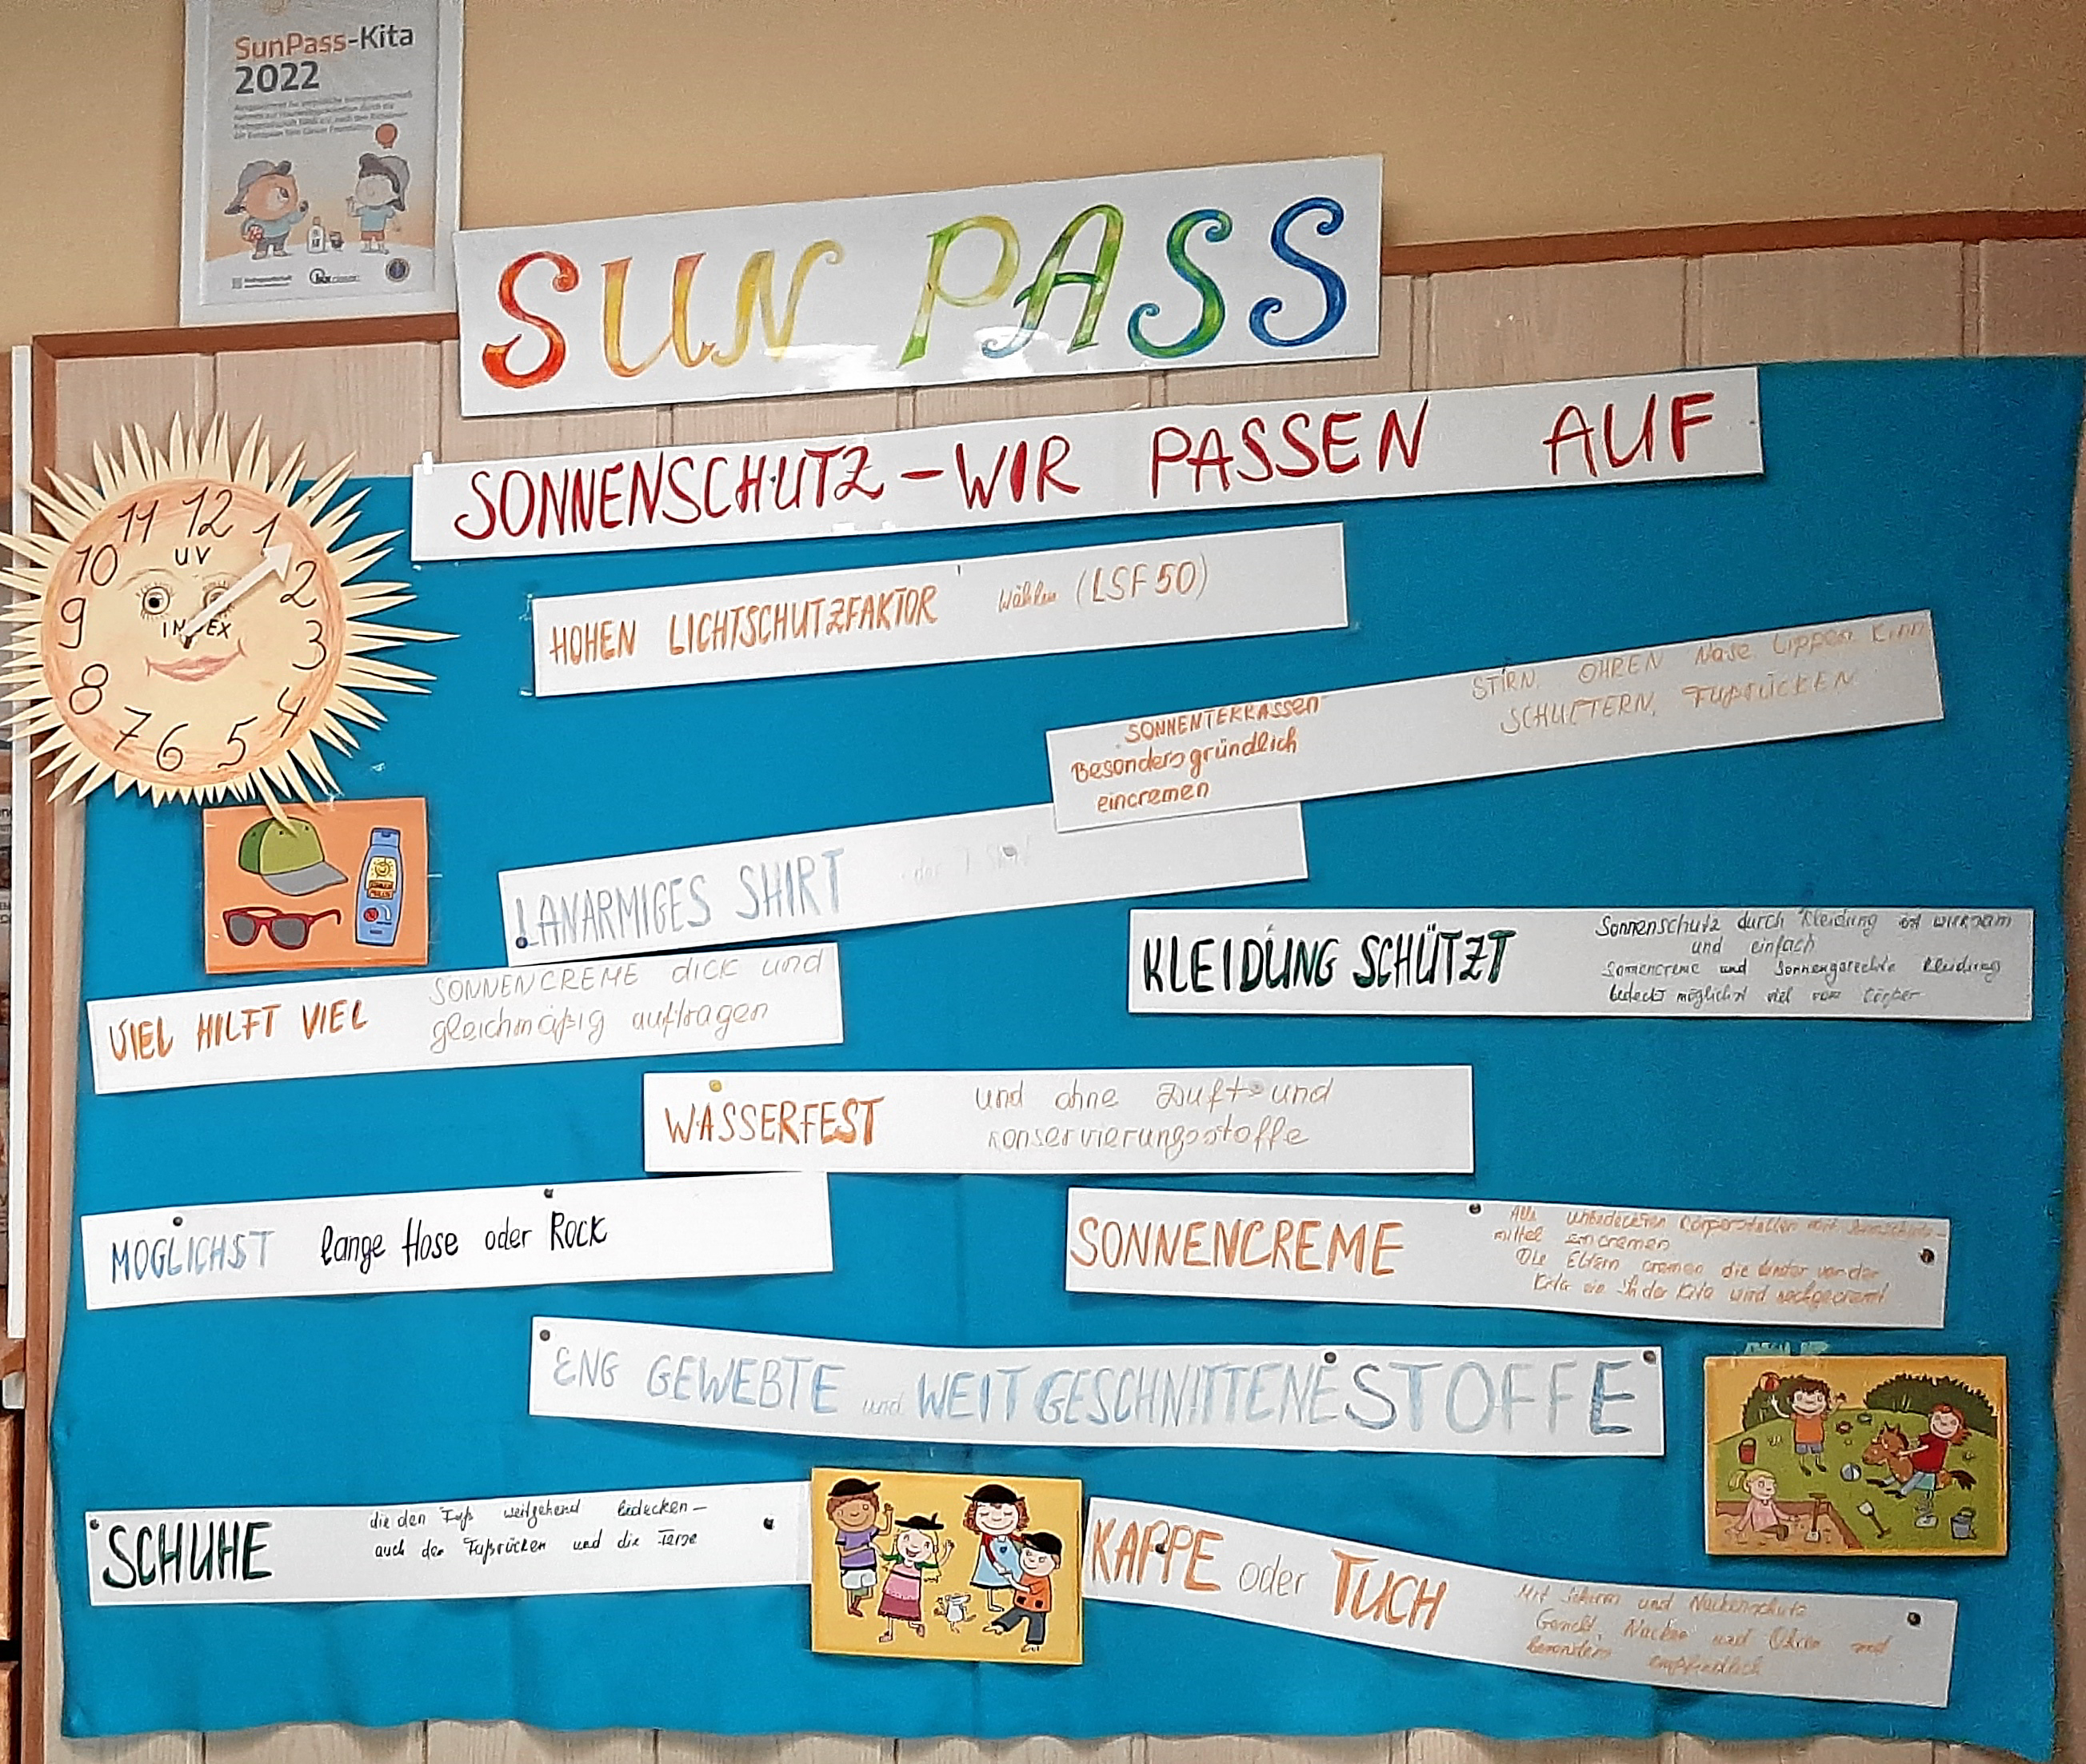 SunPass-Kita
2022
SUN PASS
SONNENSCHUTZ-WIR PASSEN AUF
11 12 1
10 UV 2
9 INDEX 3
8 4
7 6 5
HOHEN LICHTSCHUTZFAKTOR wählen (LSF 50)
SONNENTERRASSEN
Besonders gründlich
eincremen
STIRN, OHREN Nase Lippen Kinn
SCHULTERN, FUßRÜCKEN
LANARMIGES SHIRT
KLEIDUNG SCHÜTZT
Sonnenschutz durch Kleidung ist wirksam
und einfach
Sonnencreme und Sonnengerechte Kleidung
bedeckt möglichst viel vom Körper
VIEL HILFT VIEL
SONNENCREME dick und
gleichmäßig auftragen
WASSERFEST
und ohne Duft- und
Konservierungsstoffe
MÖGLICHST lange Hose oder Rock
SONNENCREME
Alle unbedeckten Körperstellen mit Sonnenschutz-
mittel eincremen
Die Eltern cremen die Kinder vor der
Kita ein In der Kita wird nachgecremt
ENG GEWEBTE und WEIT GESCHNITTENE STOFFE
SCHUHE
die den Fuß weitgehend bedecken-
auch den Fußrücken und die Ferse
KAPPE oder TUCH
Mit Schirm und Nackenschutz
Gesicht, Nacken und Ohren sind
besonders empfindlich